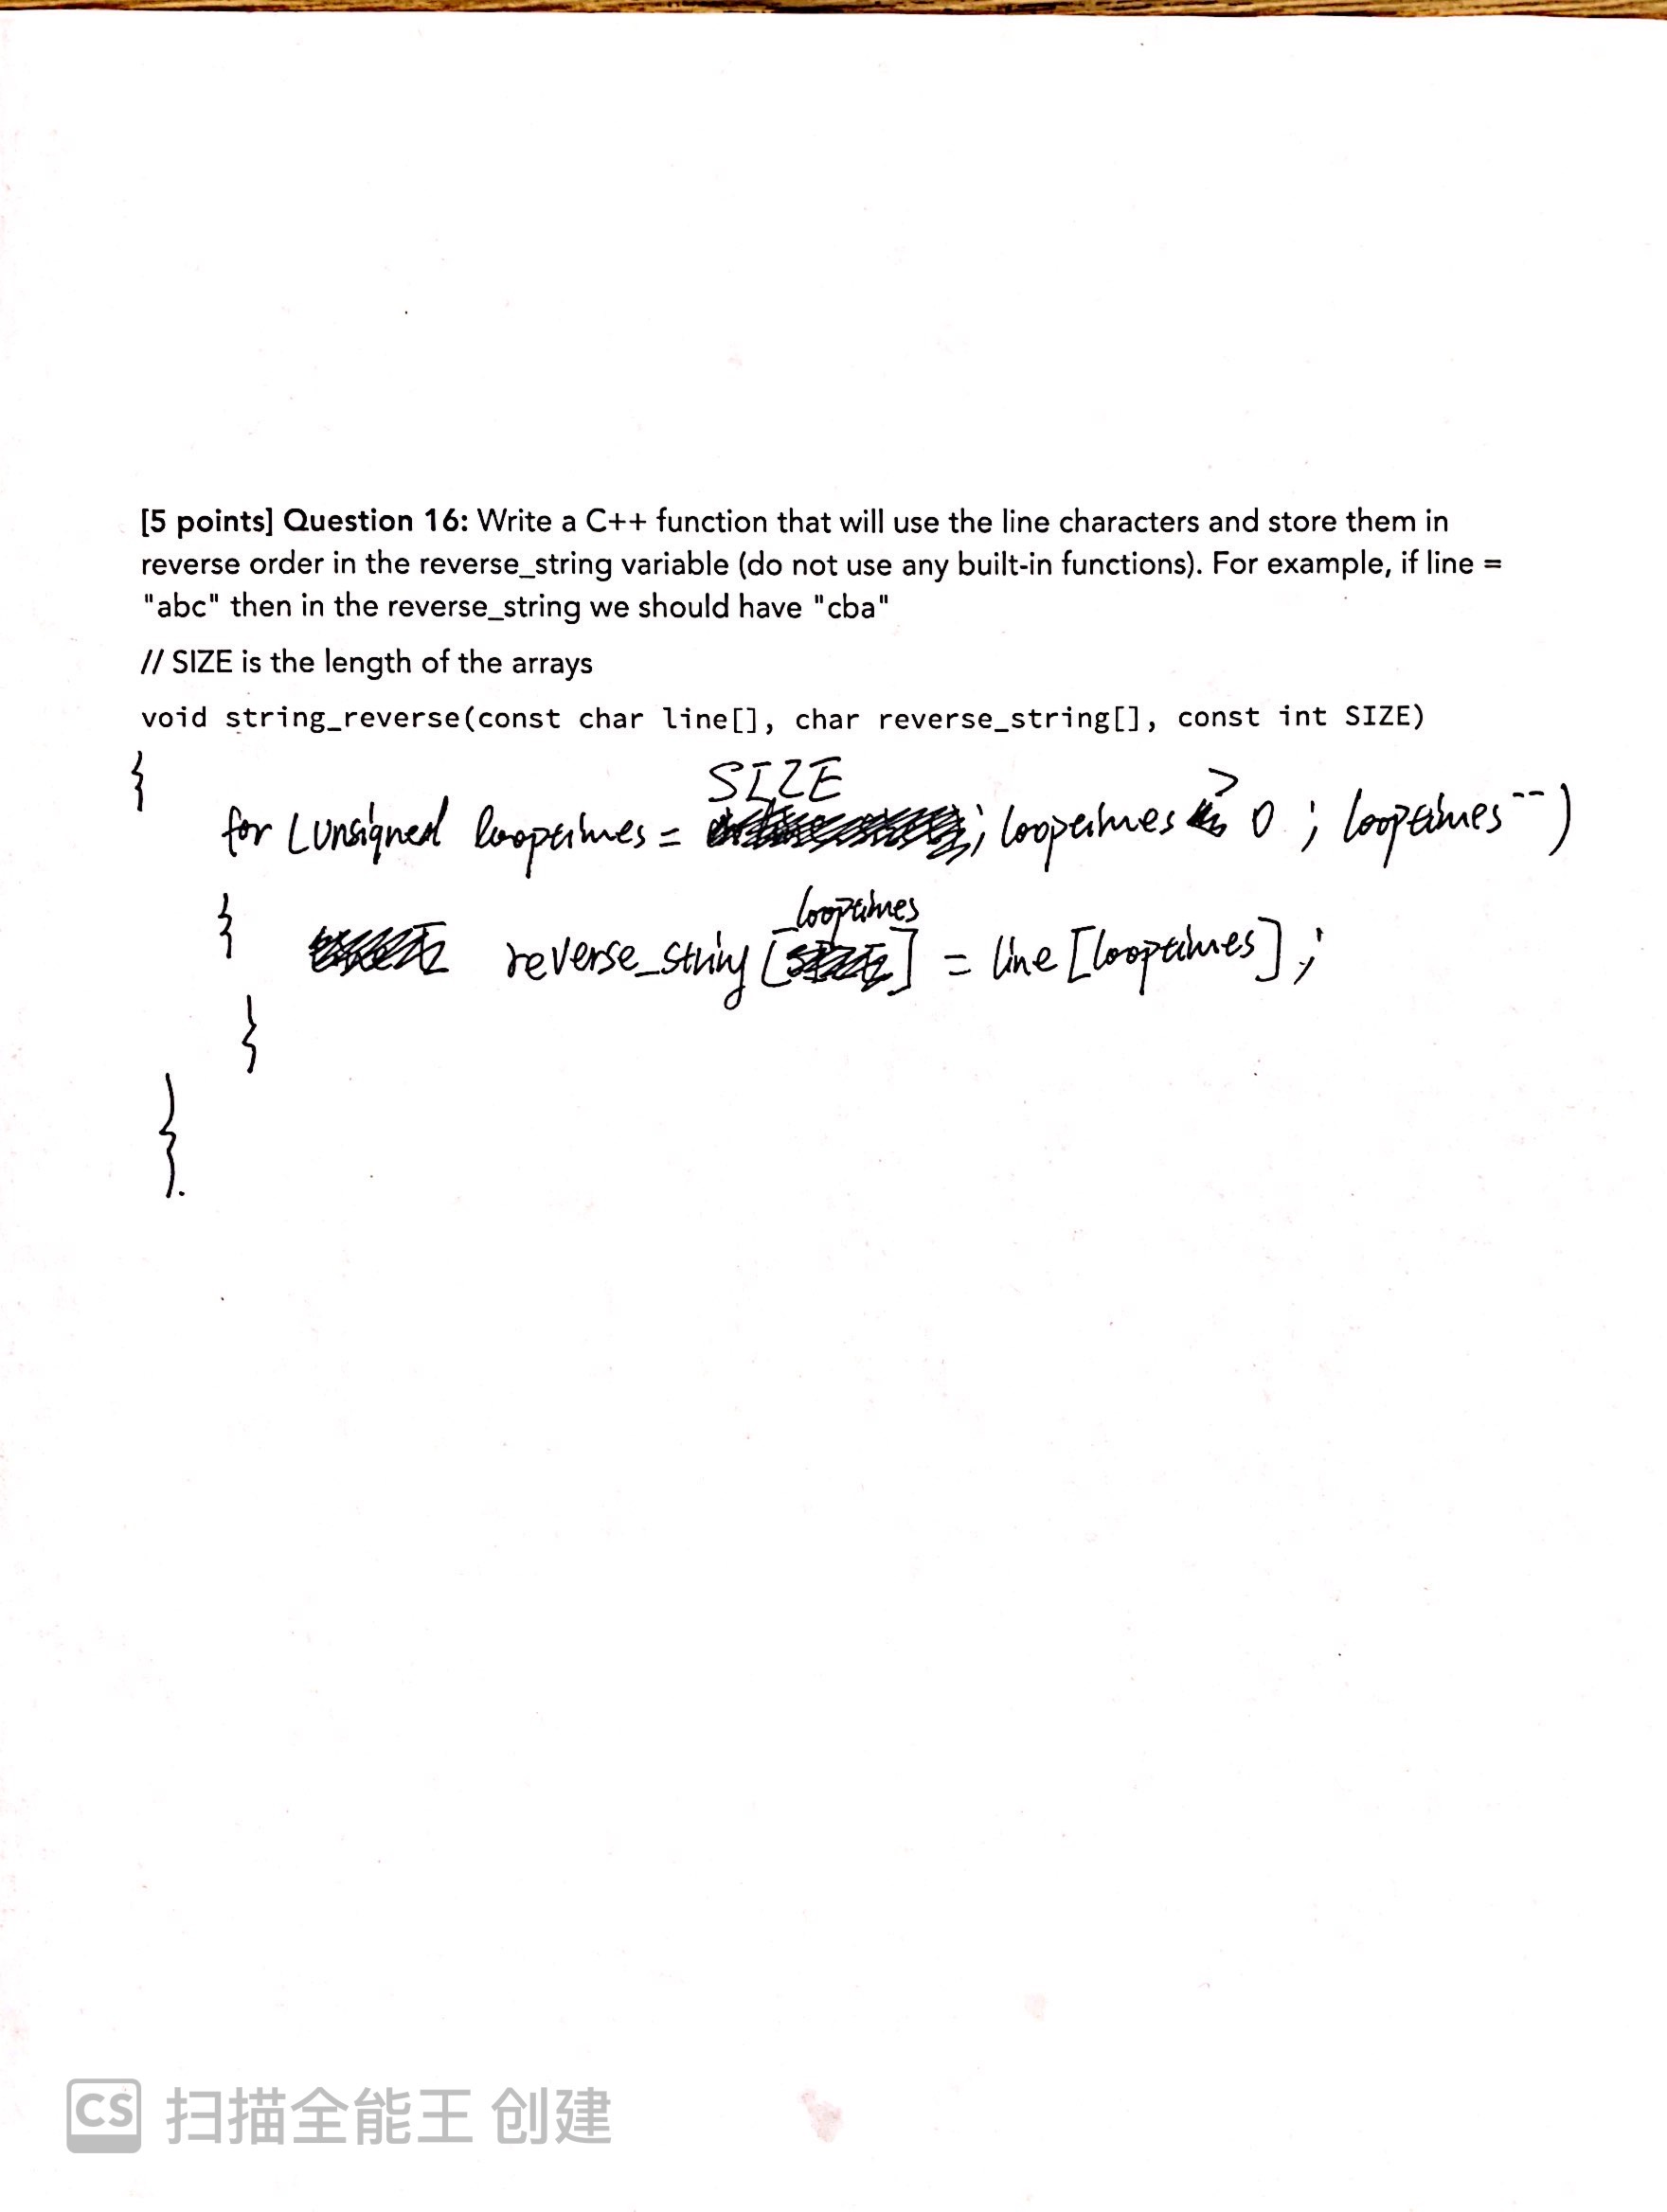 [5 points] Question 16: Write a C++ function that will use the line characters and store them in
reverse order in the reverse_string variable (do not use any built-in functions). For example, if line =
"abc" then in the reverse_string we should have "cba"
// SIZE is the length of the arrays
void string_reverse(const char line[], char reverse_string[], const int SIZE)
{
SIZE
for (unsigned looptimes = ; looptimes > 0 ; looptimes--)
looptimes
{ reverse_string [ ] = line [looptimes] ;
}
}.
CS 扫描全能王 创建